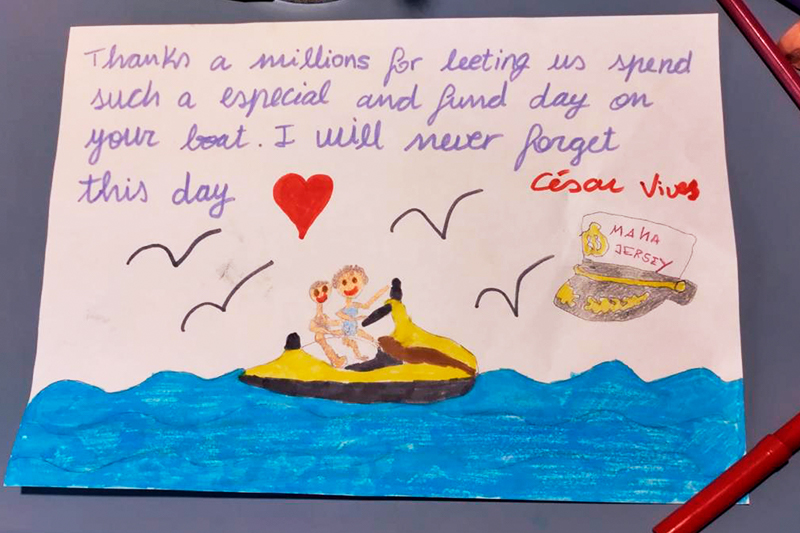 Thanks a millions for leeting us spend
such a especial and fund day on
your boat. I will never forget
this day
César Vives
MAHA
JERSEY